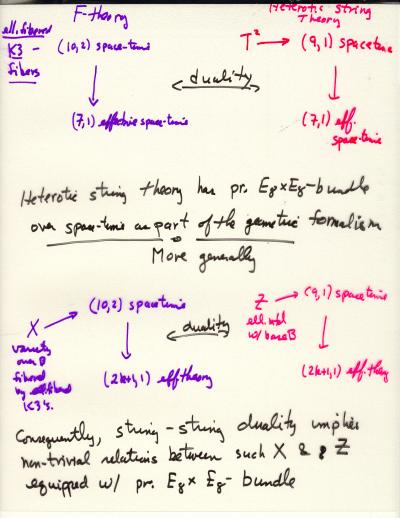 F-theory
Heterotic String
Theory
ell. fibered
K3 -
fibers
(10,2) space-time
T² → (9,1) spacetime
duality
(7,1) effective space-time
(7,1) eff.
space-time
Heterotic string theory has pr. E8×E8-bundle
over space-time as part of the geometric formalism
More generally
X → (10,2) spacetime
Z → (9,1) spacetime
duality
ell. mfd
w/ base B
variety
over B
fibered
by ell. fibered
K3's.
(2k+1,1) eff. theory
(2k+1,1) eff. theory
Consequently, string-string duality implies
non-trivial relations between such X & Z
equipped w/ pr. E8× E8- bundle